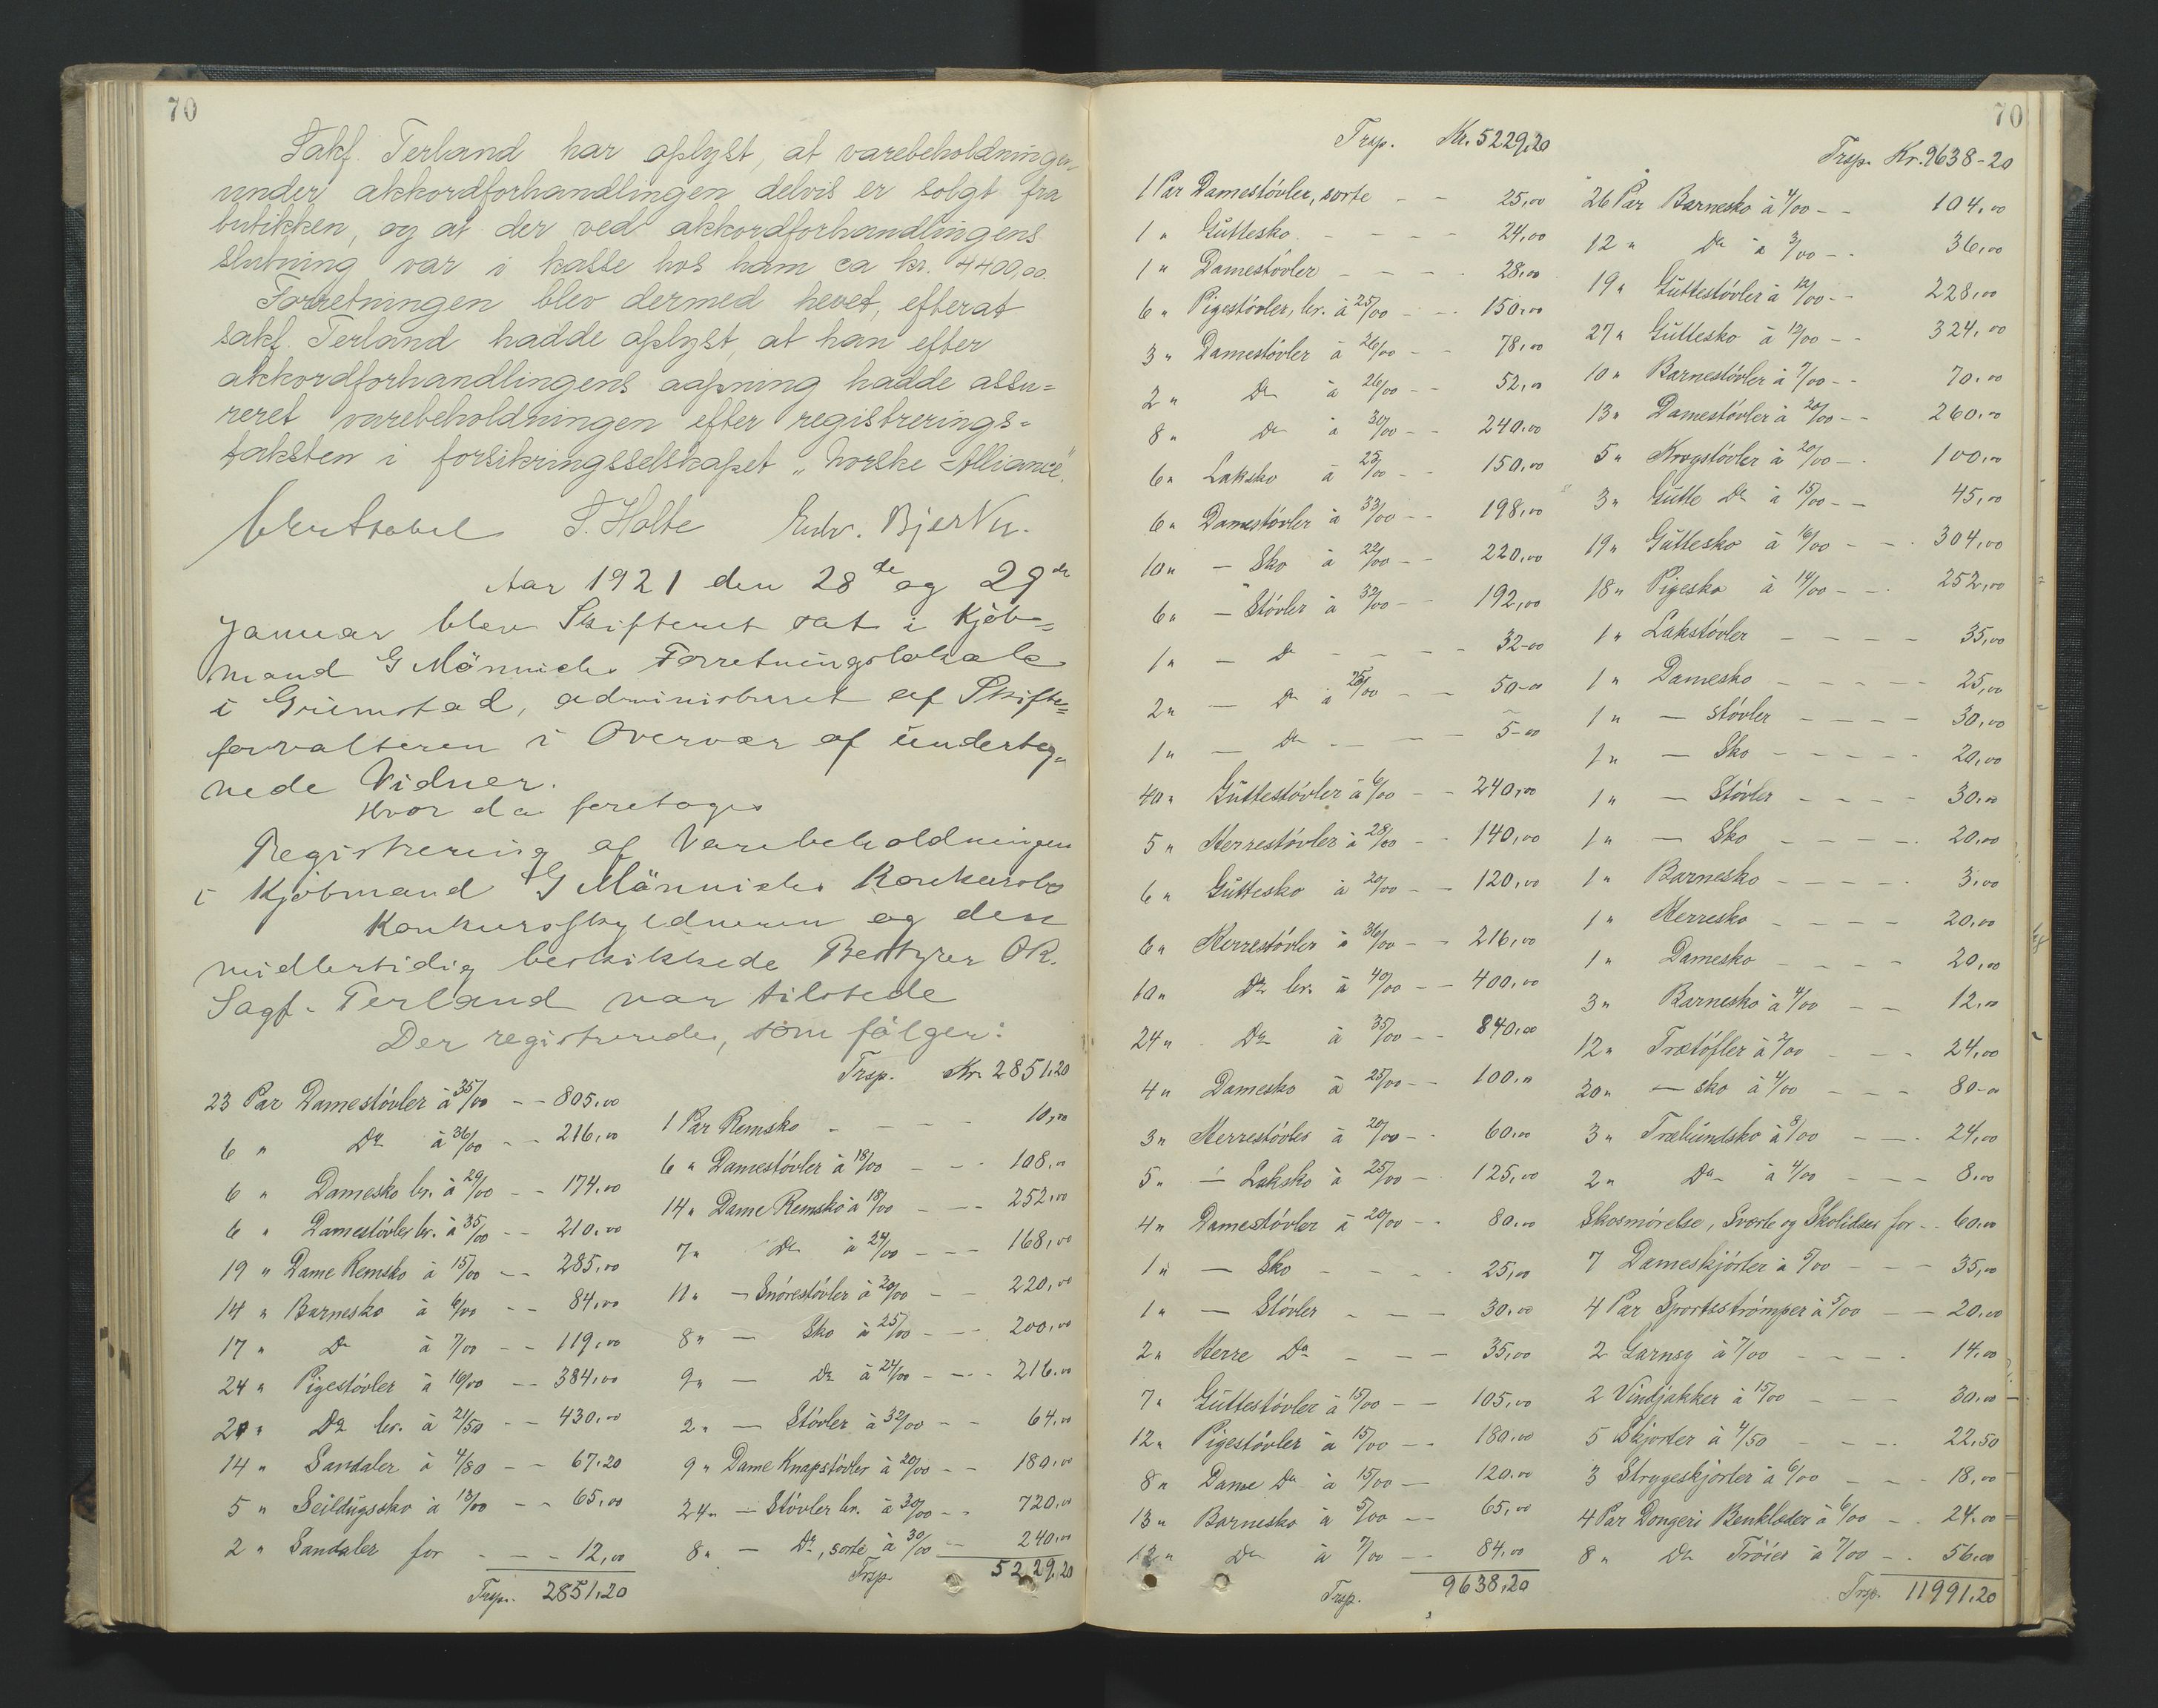 70
Sakf. Terland har oplyst, at varebeholdningen
under akkordforhandlingen delvis er solgt fra
butikken, og at der ved akkordforhandlingens
slutning var i kasse hos ham ca kr. 4400,00.
Forretningen blev dermed hevet, efterat
sakf. Terland hadde oplyst, at han efter
akkordforhandlingens aapning hadde assu=
reret varebeholdningen efter registrerings=
taksten i forsikringsselskapet "Norske Alliance".
T. Holte
Aar 1921 den 28de og 29de
Januar blev Skifteret sat i Kjöb=
mand G Männichs Forretningslokale
i Grimstad, administreret af Skifte=
forvalteren i Overvær af underteg=
nede Vidner.
Hvor da foretoges
Registrering af Varebeholdningen
i Kjöbmand G Männichs Konkursbo
Konkursskyldneren og den
midlertidig beskikkede Bestyrer OR.
Sagf. Terland var tilstede
Der registreredes, som fölger:
23 Par Damestövler à 35/00 -- 805,00
6 " Do à 36/00 -- 216,00
6 " Damesko br. à 29/00 -- 174,00
6 " Damestövler br. à 35/00 -- 210,00
19 " Dame Remsko à 15/00 -- 285,00
14 " Barnesko à 6/00 -- 84,00
17 " Do à 7/00 -- 119,00
24 " Pigestövler à 16/00 -- 384,00
20 " Do br. à 21/50 -- 430,00
14 " Sandaler à 4/80 -- 67,20
5 " Seildugssko à 13/00 -- 65,00
2 " Sandaler for --- 12,00
Trsp. 2851,20
Trsp. Kr. 2851,20
1 Par Remsko ---- 10,00
6 " Damestövler à 18/00 --- 108,00
14 " Dame Remsko à 18/00 --- 252,00
7 " Do à 24/00 --- 168,00
11 " — Snörestövler à 20/00 -- 220,00
8 " — Sko à 25/00 --- 200,00
9 " — Do à 24/00 --- 216,00
2 " — Stövler à 32/00 -- 64,00
9 " Dame Knapstövler à 20/00 -- 180,00
24 " — Stövler br. à 30/00 -- 720,00
8 " — Do, sorte à 30/00 -- 240,00
Trsp. 5229,20
70
Trsp. Kr. 5229,20
1 Par Damestövler, sorte -- 25,00
1 " Guttesko ---- 24,00
1 " Damestövler ---- 28,00
6 " Pigestövler, br. à 25/00 -- 150,00
3 " Damestövler à 26/00 -- 78,00
2 " Do à 26/00 -- 52,00
8 " Do à 30/00 -- 240,00
6 " Laksko à 25/00 -- 150,00
6 " Damestövler à 33/00 -- 198,00
10 " — Sko à 22/00 -- 220,00
6 " — Stövler à 32/00 -- 192,00
1 " — Do ---- 32-00
2 " — Do à 25/00 -- 50-00
1 " — Do ---- 5-00
40 " Guttestövler à 6/00 -- 240,00
5 " Herrestövler à 28/00 -- 140,00
6 " Guttesko à 20/00 -- 120,00
6 " Herrestövler à 36/00 -- 216,00
10 " Do br. à 40/00 -- 400,00
24 " Do à 35/00 -- 840,00
4 " Damesko à 25/00 -- 100,00
3 " Herrestövler à 20/00 -- 60,00
5 " — Laksko à 25/00 -- 125,00
4 " Damestövler à 20/00 -- 80,00
1 " — Sko ---- 25,00
1 " — Stövler --- 30,00
2 " Herre Do --- 35,00
7 " Guttestövler à 15/00 -- 105,00
12 " Pigestövler à 15/00 -- 180,00
8 " Dame Do à 15/00 -- 120,00
13 " Barnesko à 5/00 -- 65,00
12 " Do à 7/00 -- 84,00
Trsp. 9638,20
Trsp. Kr. 9638-20
26 Par Barnesko à 4/00 -- 104,00
12 " Do à 3/00 -- 36,00
19 " Guttestövler à 12/00 -- 228,00
27 " Guttesko à 12/00 -- 324,00
10 " Barnestövler à 7/00 -- 70,00
13 " Damestövler à 20/00 -- 260,00
5 " Krogstövler à 20/00 -- 100,00
3 " Gutte Do à 15/00 -- 45,00
19 " Guttesko à 16/00 -- 304,00
18 " Pigesko à 14/00 -- 252,00
1 " Lakstövler ---- 35,00
1 " Damesko ---- 25,00
1 " — stövler ---- 30,00
1 " — Sko ---- 20,00
1 " — Stövler ---- 30,00
1 " — Sko ---- 20,00
1 " Barnesko ---- 3,00
1 " Herresko ---- 20,00
1 " Damesko ---- 20,00
3 " Barnesko à 4/00 -- 12,00
12 " Trætöfler à 2/00 --- 24,00
20 " — sko à 4/00 --- 80-00
3 " Træbundsko à 8/00 --- 24,00
2 " Do à 4/00 --- 8,00
Skosmörelse, Sværte og Skolidser for -- 60,00
7 Dameskjörter à 5/00 --- 35,00
4 Par Sportsströmper à 5/00 -- 20,00
2 Garnsy à 7/00 ---- 14,00
2 Vindjakker à 15/00 --- 30,00
5 Skjorter à 4/50 ---- 22,50
3 Strygeskjorter à 6/00 --- 18,00
4 Par Dongeri Benklæder à 6/00 -- 24,00
8 " Do Tröier à 7/00 -- 56,00
Trsp. 11991,20